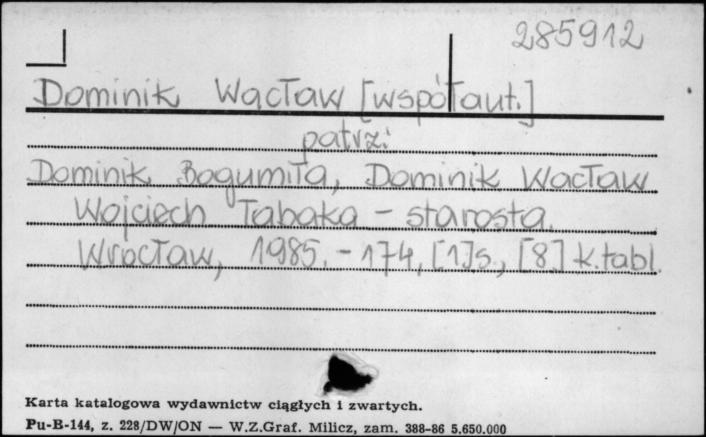 285912
Dominik Wacław [współaut.]
patrz:
Dominik Bogumiła, Dominik Wacław
Wojciech Tabaka - starosta.
Wrocław, 1985. - 174, [1] s., [8] k. tabl.
Karta katalogowa wydawnictw ciągłych i zwartych.
Pu-B-144, z. 228/DW/ON — W.Z.Graf. Milicz, zam. 388-86 5.650.000